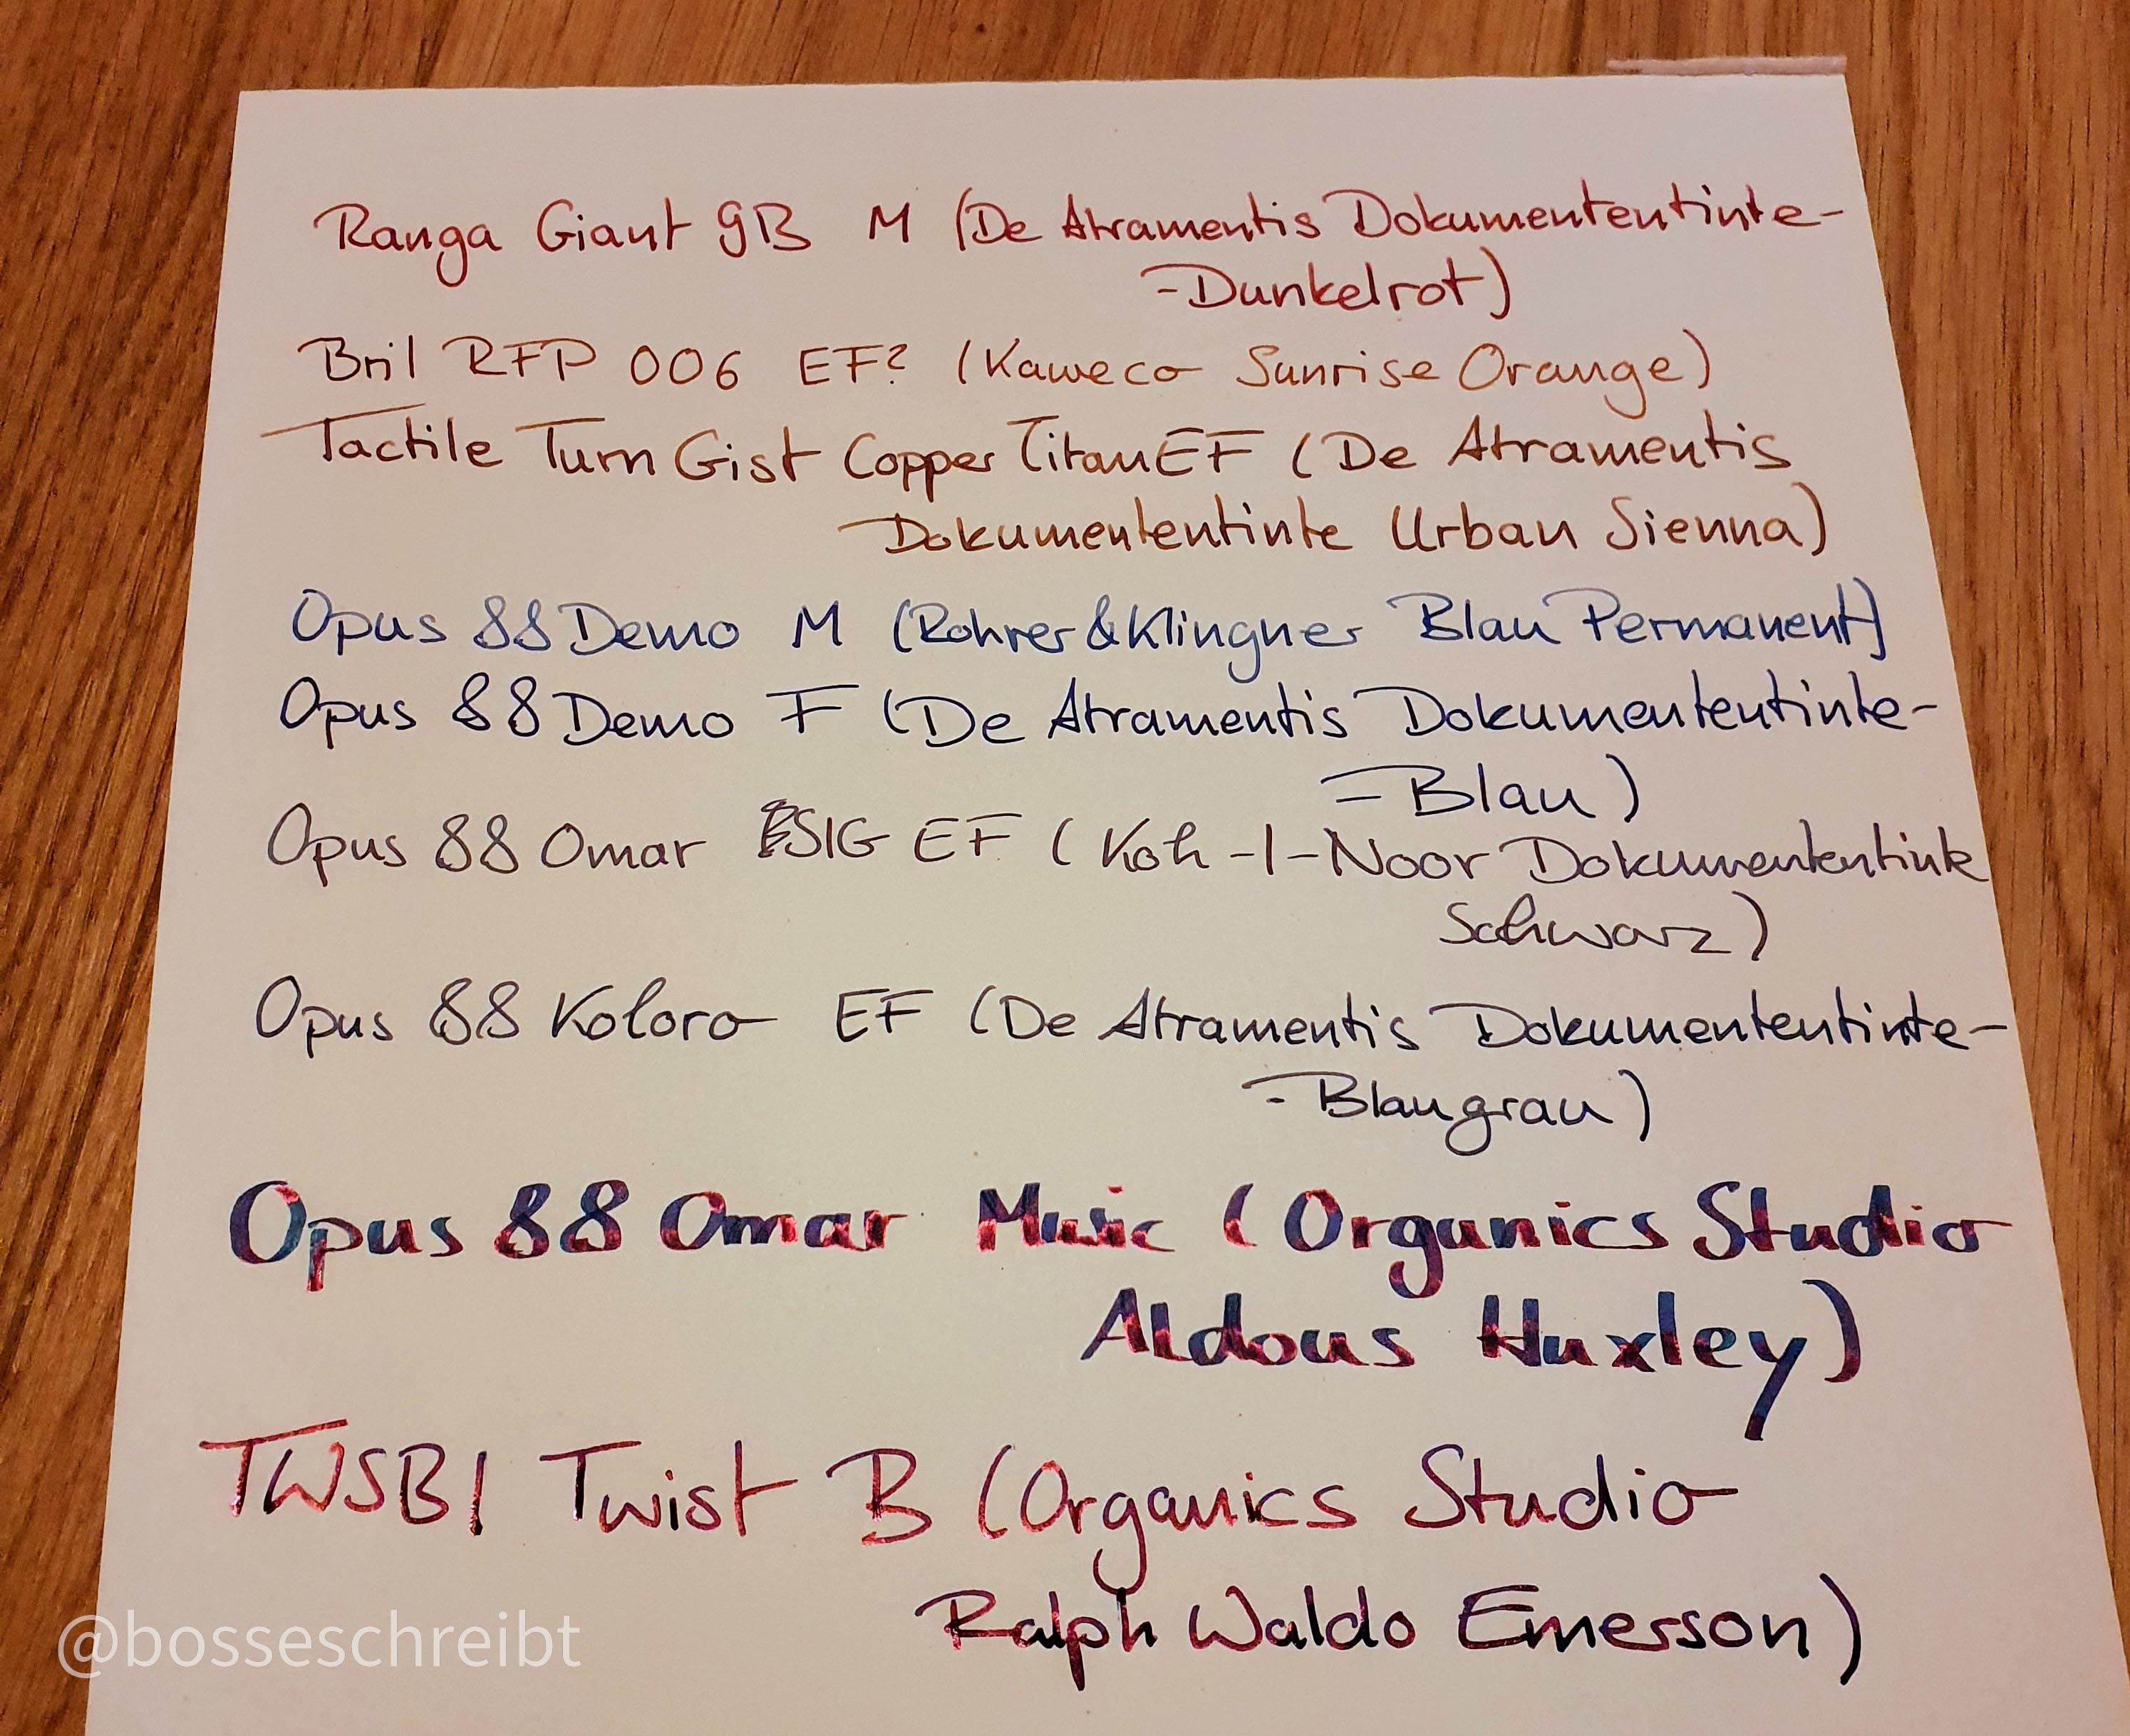 Ranga Giant 9B M (De Atramentis Dokumententinte-
-Dunkelrot)
Bril RFP 006 EF? (Kaweco Sunrise Orange)
Tactile Turn Gist Copper Titan EF (De Atramentis
Dokumententinte Urban Sienna)
Opus 88 Demo M (Rohrer & Klingner Blau Permanent)
Opus 88 Demo F (De Atramentis Dokumententinte-
-Blau)
Opus 88 Omar SIG EF (Koh-I-Noor Dokumententinte
Schwarz)
Opus 88 Koloro EF (De Atramentis Dokumententinte-
-Blaugrau)
Opus 88 Omar Music (Organics Studio
Aldous Huxley)
TWSBI Twist B (Organics Studio
Ralph Waldo Emerson)
@bosseschreibt